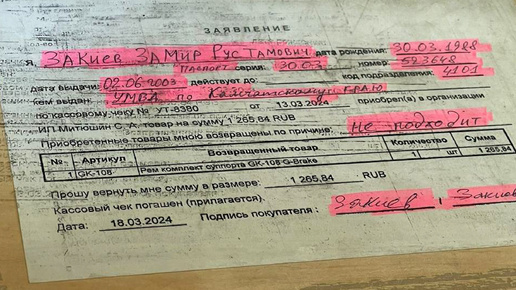 ЗАЯВЛЕНИЕ
Я, ЗАКИЕВ ЗАМИР РУСТАМОВИЧ дата рождения: 30.03.1988
ПАСПОРТ серия: 3003 номер: 523648
дата выдачи: 02.06.2003 действует до: код подразделения: 4101
кем выдан: УМВД по Камчатскому краю
по кассорному чеку № УТ-8380 от 13.03.2024 приобрел(а) в организации
ИП Митюшин С. А. товар на сумму 1 265,84 RUB
Приобретенные товары мною возвращены по причине: Не подходит
Возвращенный товар
№ Артикул Количество Сумма
1 GK-108 Рем комплект суппорта GK-108 G-Brake 1 шт 1 265,84
Прошу вернуть мне сумму в размере: 1 265,84 RUB
Кассовый чек погашен (прилагается).
Дата: 18.03.2024 Подпись покупателя: Закиев / Закиев